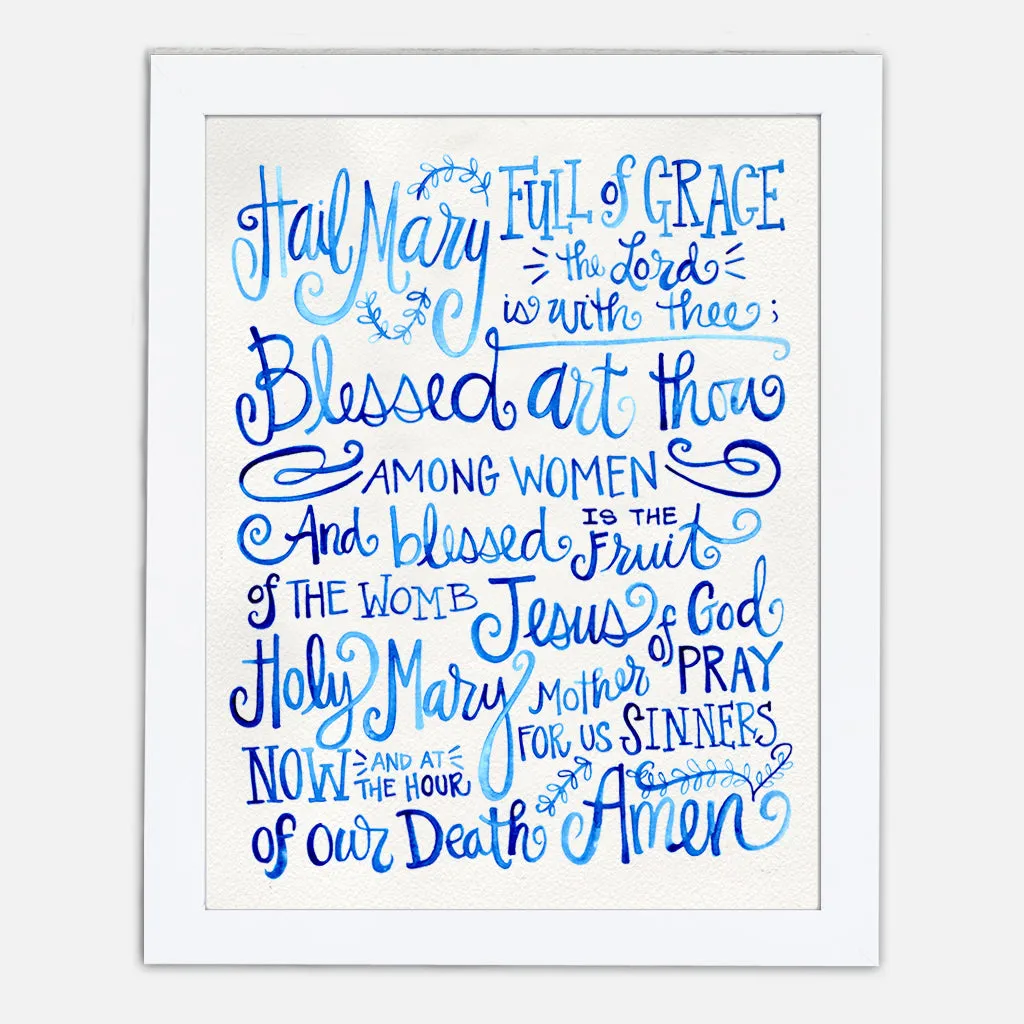 Hail Mary FULL of GRACE
the Lord
is with thee;
Blessed art thou
AMONG WOMEN
And blessed IS THE Fruit
of THE WOMB Jesus
Holy Mary Mother of God
PRAY
FOR US SINNERS
NOW AND AT
THE HOUR
of our Death Amen